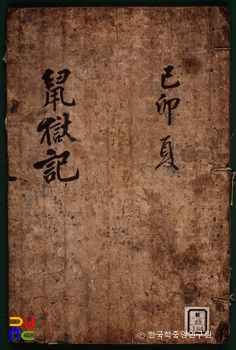 己卯 夏
鼠獄記
© 한국학중앙연구원